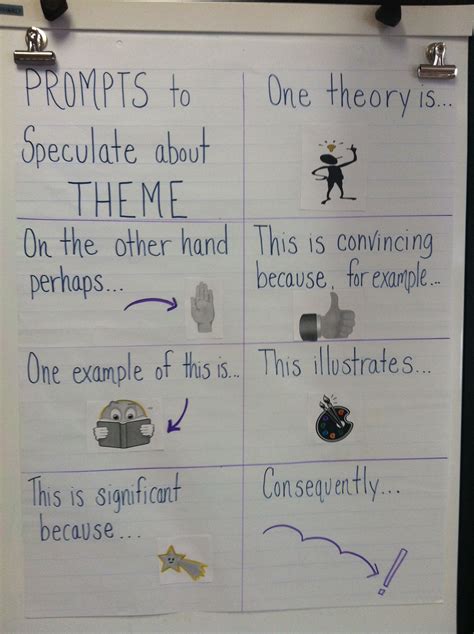 PROMPTS to
Speculate about
THEME
One theory is...
On the other hand
perhaps...
This is convincing
because, for example...
One example of this is...
This illustrates...
This is significant
because...
Consequently...